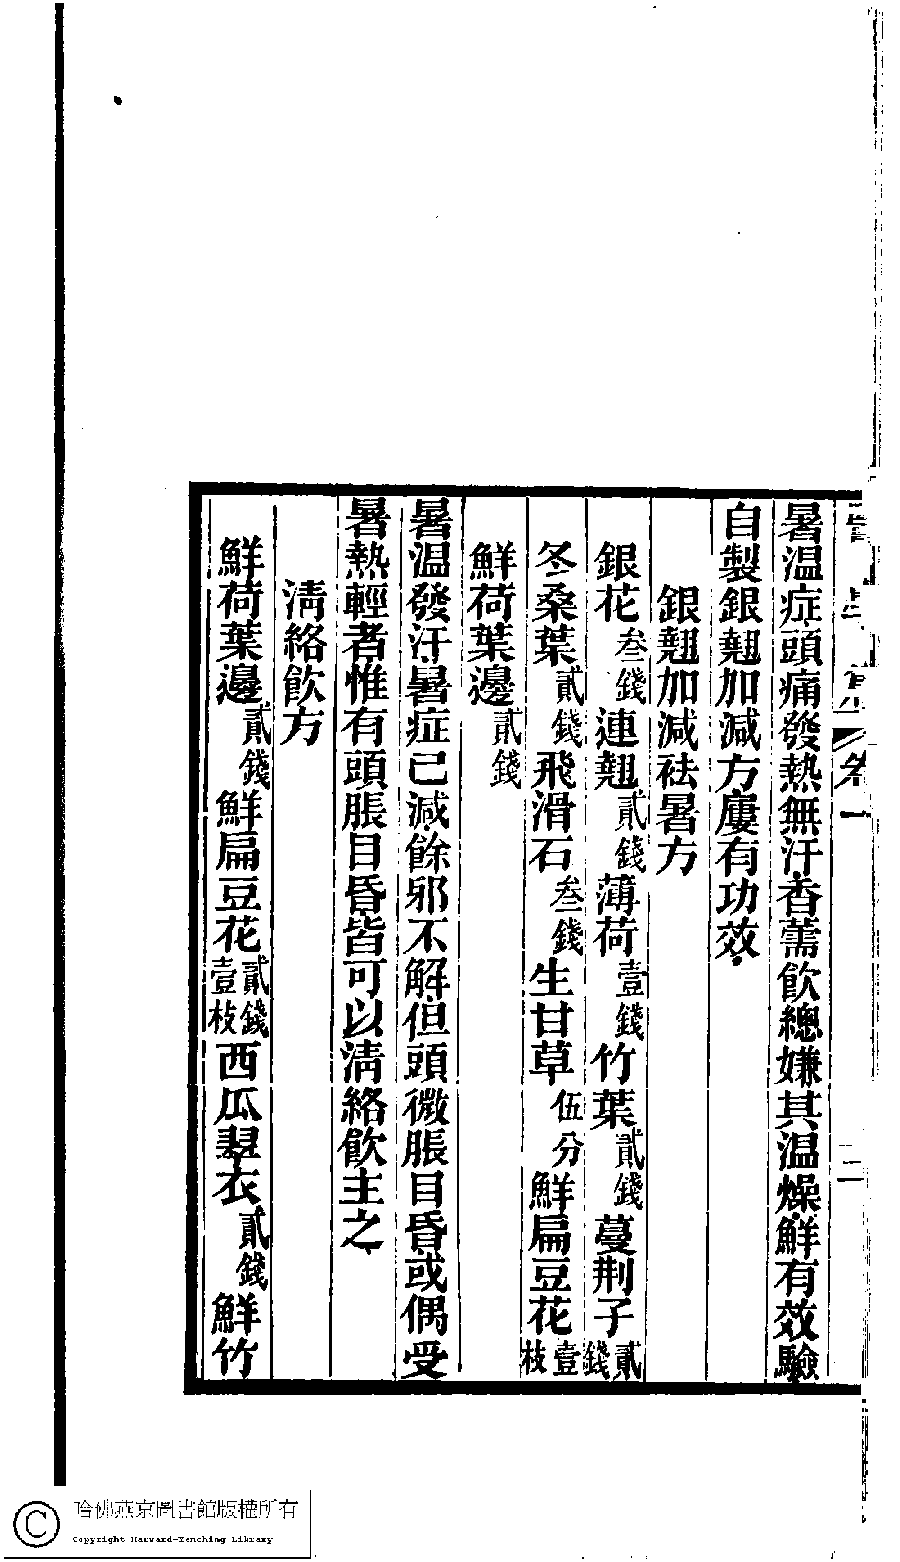 卷一
二
暑温症頭痛發熱無汗香薷飲總嫌其温燥鮮有效驗
自製銀翹加減方屢有功效
銀翹加減祛暑方
銀花叁錢連翹貳錢薄荷壹錢竹葉貳錢蔓荆子貳錢
冬桑葉貳錢飛滑石叁錢生甘草伍分鮮扁豆花壹枝
鮮荷葉邊貳錢
暑温發汗暑症已減餘邪不解但頭微脹目昏或偶受
暑熱輕者惟有頭脹目昏皆可以清絡飲主之
清絡飲方
鮮荷葉邊貳錢鮮扁豆花貳錢壹枝西瓜翠衣貳錢鮮竹
哈佛燕京圖書館版權所有
Copyright Harvard-Yenching Library